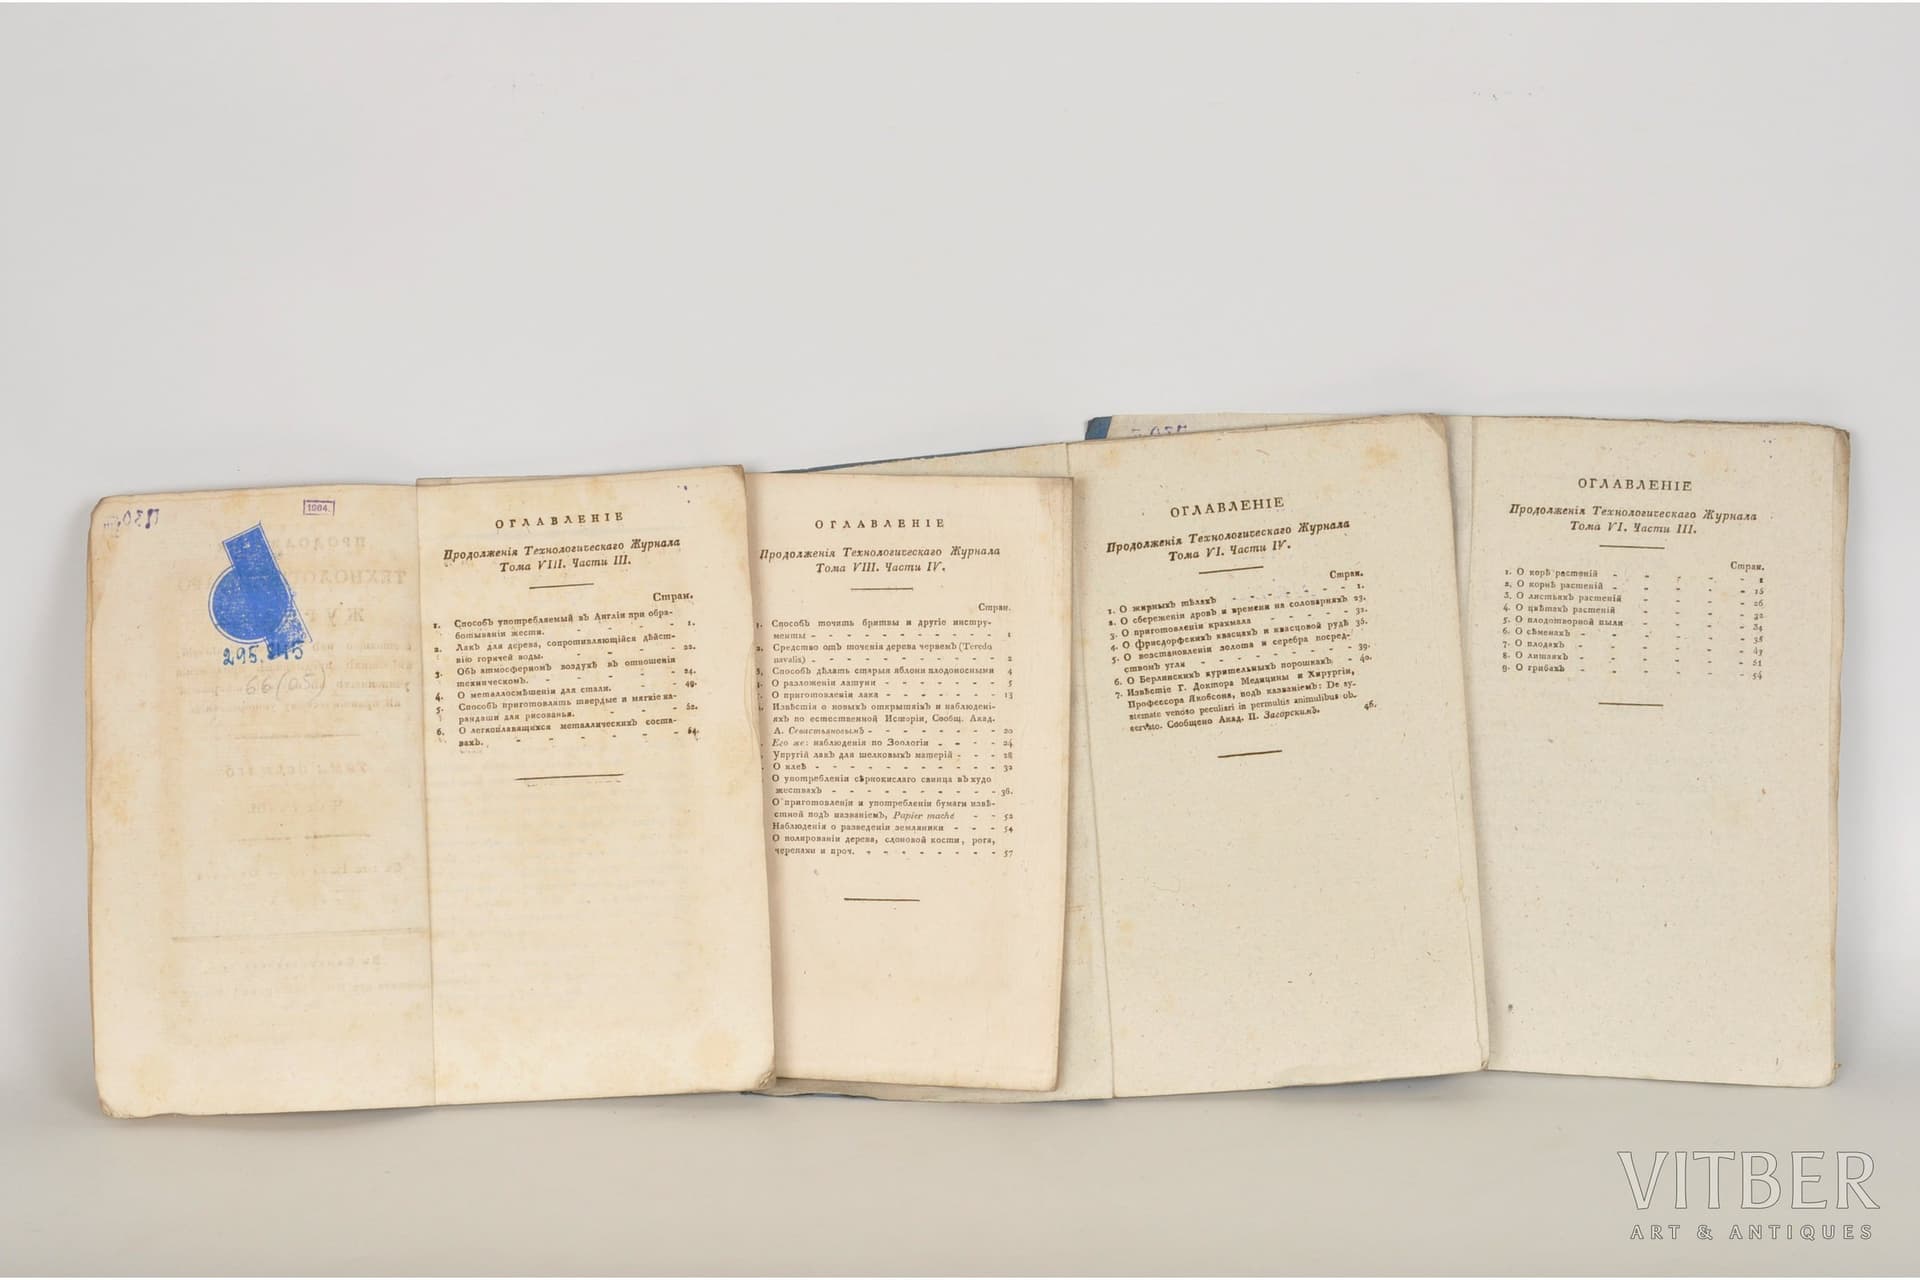 1964.
295.845
66(05)
ОГЛАВЛЕНІЕ
Продолженія Технологическаго Журнала
Тома VIII. Части III.
Стран.
1. Способъ употребляемый въ Англіи при обра-
ботываніи жести. - - - - 1.
2. Лакъ для дерева, сопротивляющійся дѣйст-
вію горячей воды. - - - - 22.
3. Объ атмосферномъ воздухѣ въ отношеніи
техническомъ. - - - - - 24.
4. О металлосмѣшеніи для стали. - - 49.
5. Способъ приготовлять твердые и мягкіе ка-
рандаши для рисованья. - - - - 52.
6. О легкоплавящихся металлическихъ соста-
вахъ. - - - - - - 64.
ОГЛАВЛЕНІЕ
Продолженія Технологическаго Журнала
Тома VIII. Части IV.
Стран.
1. Способъ точить бритвы и другіе инстру-
менты - - - - - - - - - - 1
2. Средство отъ точенія дерева червемъ (Teredo
navalis) - - - - - - - - - - 2
3. Способъ дѣлать старыя яблони плодоносными 4
О разложеніи латуни - - - - - - - 5
О приготовленіи лака - - - - - - - 13
Извѣстія о новыхъ открытіяхъ и наблюдені-
яхъ по естественной Исторіи, Сообщ. Акад.
А. Севастьяновымъ - - - - - - - - 20
Его же: наблюденія по Зоологіи - - - - 24
Упругій лакъ для шелковыхъ матерій - - - 28
О клеѣ - - - - - - - - - - 32
О употребленіи сѣрнокислаго свинца въ худо
жествахъ - - - - - - - - - - 36.
О приготовленіи и употребленіи бумаги извѣ-
стной подъ названіемъ, Papier maché - - 52
Наблюденія о разведеніи земляники - - - 54
О полированіи дерева, слоновой кости, рога,
черепахи и проч. - - - - - - - - 57
ОГЛАВЛЕНІЕ
Продолженія Технологическаго Журнала
Тома VI. Части IV.
Стран.
1. О жирныхъ тѣлахъ - - - - - - 1.
2. О сбереженіи дровъ и времени на солеварняхъ 23.
3. О приготовленіи крахмала - - - - - 32.
4. О фрисдорфскихъ квасцахъ и квасцовой рудѣ 35.
5. О возстановленіи золота и серебра посред-
ствомъ угля - - - - - - - - 39.
6. О Берлинскихъ курительныхъ порошкахъ - 40.
7. Извѣстіе Г. Доктора Медицины и Хирургіи,
Профессора Якобсона, подъ названіемъ: De sy-
stemate venoso peculiari in permultis animalibus ob-
servato. Сообщено Акад. П. Загорскимъ. 46.
ОГЛАВЛЕНІЕ
Продолженія Технологическаго Журнала
Тома VI. Части III.
Стран.
1. О корѣ растеній - - - - - 1
2. О корнѣ растеній - - - - - 15
3. О листьяхъ растеній - - - - 26
4. О цвѣтахъ растеній - - - - 32
5. О плодотворной пыли - - - - 34
6. О сѣменахъ - - - - - 38
7. О плодахъ - - - - - 47
8. О лишаяхъ - - - - - 51
9. О грибахъ - - - - - 54
VITBER
ART & ANTIQUES